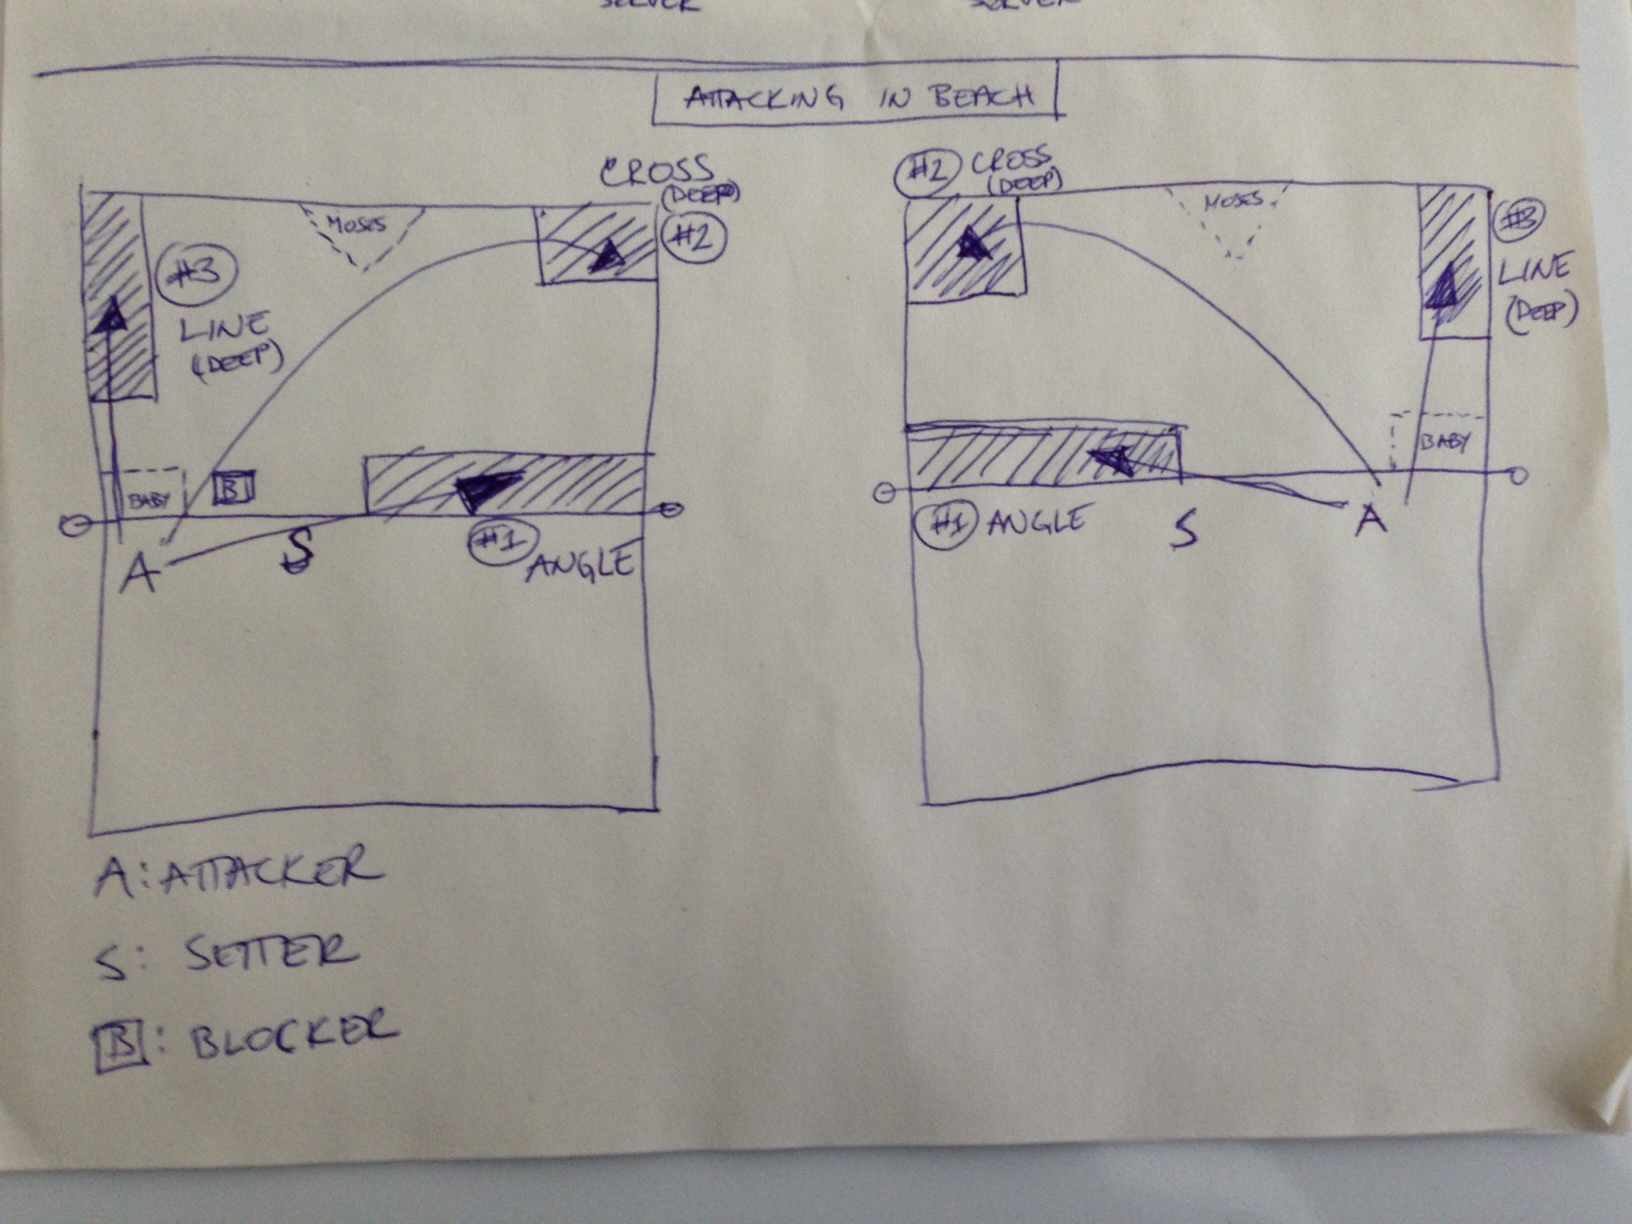 SERVER
SERVER
ATTACKING IN BEACH
CROSS
(DEEP)
#2
MOSES
#3
LINE
(DEEP)
BABY
B
A
S
#1
ANGLE
#2 CROSS
(DEEP)
MOSES
#3
LINE
(DEEP)
BABY
#1 ANGLE
S
A
A: ATTACKER
S: SETTER
B: BLOCKER